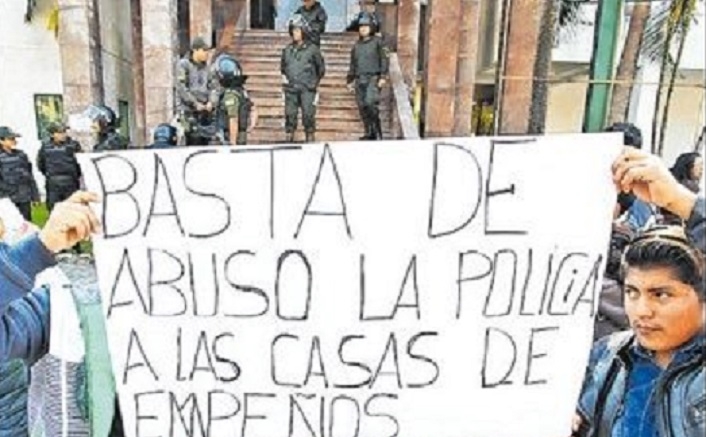 BASTA DE
ABUSO LA POLICiA
A LAS CASAS DE
EMPEÑOS